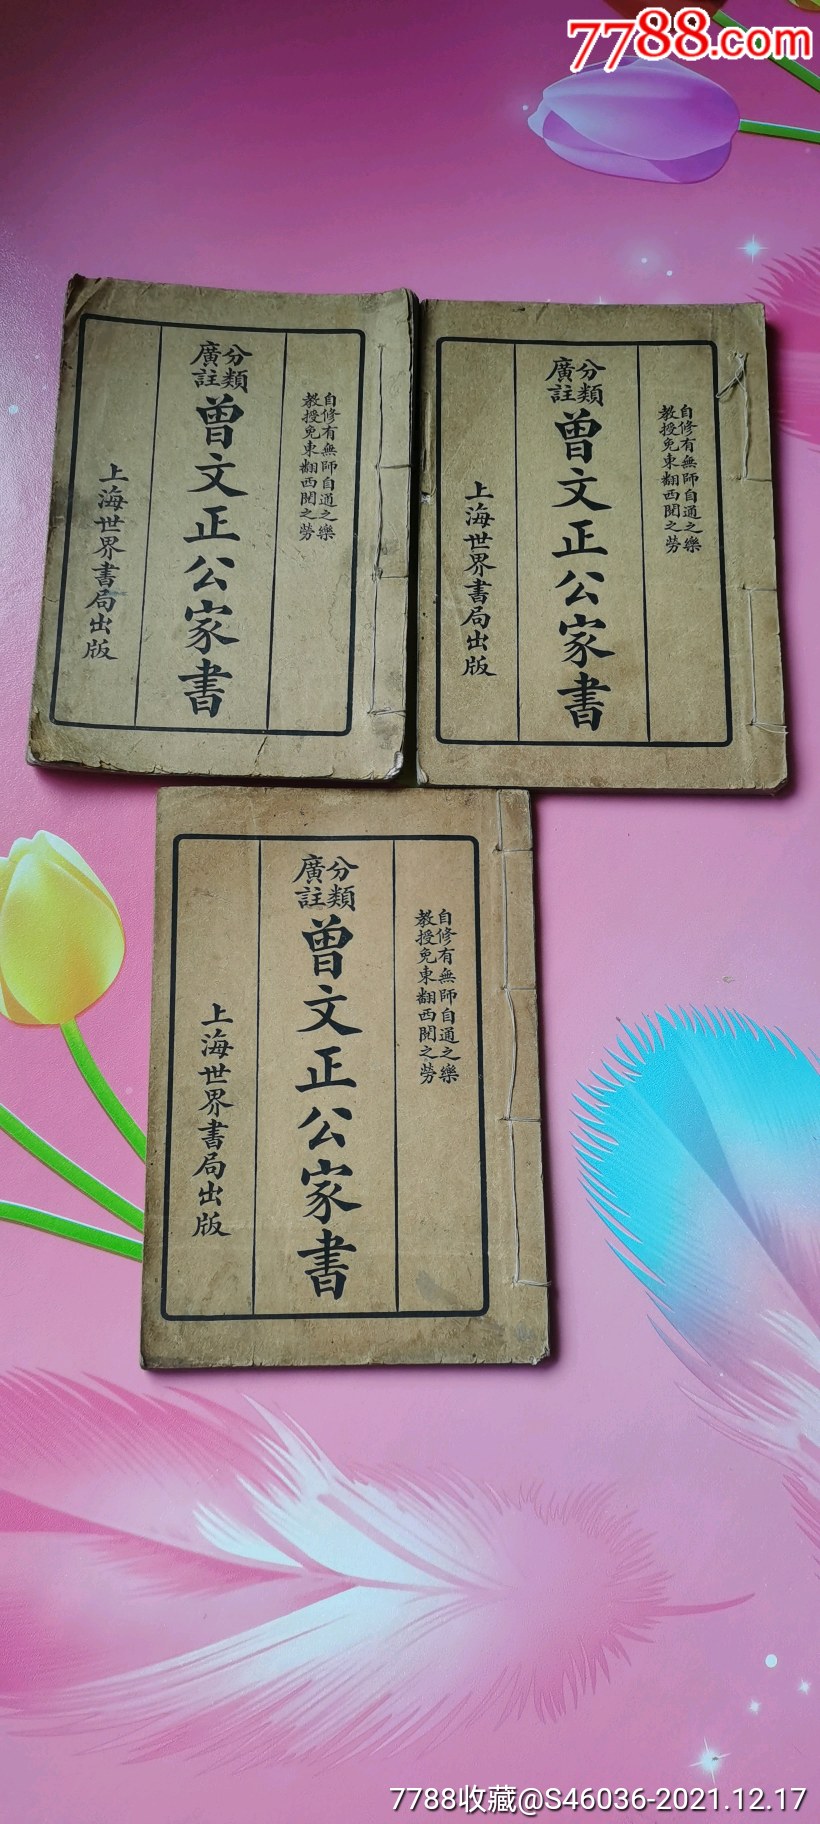 7788.com
自修有無師自通之樂
教授免東翻西閱之勞
分類
廣註
曾文正公家書
上海世界書局出版
自修有無師自通之樂
教授免東翻西閱之勞
分類
廣註
曾文正公家書
上海世界書局出版
自修有無師自通之樂
教授免東翻西閱之勞
分類
廣註
曾文正公家書
上海世界書局出版
7788收藏@S46036-2021.12.17